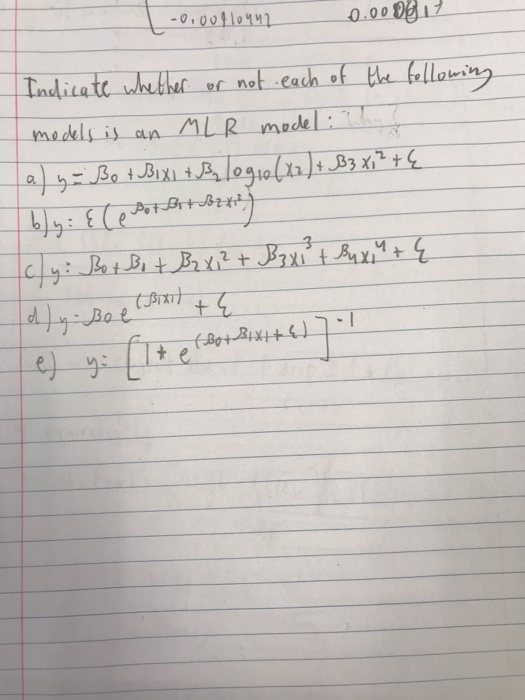 -0.00910442
Indicate whether or not each of the following
models is an MLR model:
a) y = β0 + β1x1 + β2 log10(x2) + β3x1² + ε
b) y: ε(e^(β0+β1+β2x1²))
c) y: β0 + β1 + β2x1² + β3x1³ + β4x1⁴ + ε
d) y= β0e^(β1x1) + ε
e) y= [1 + e^(β0+β1x1+ε)]^-1